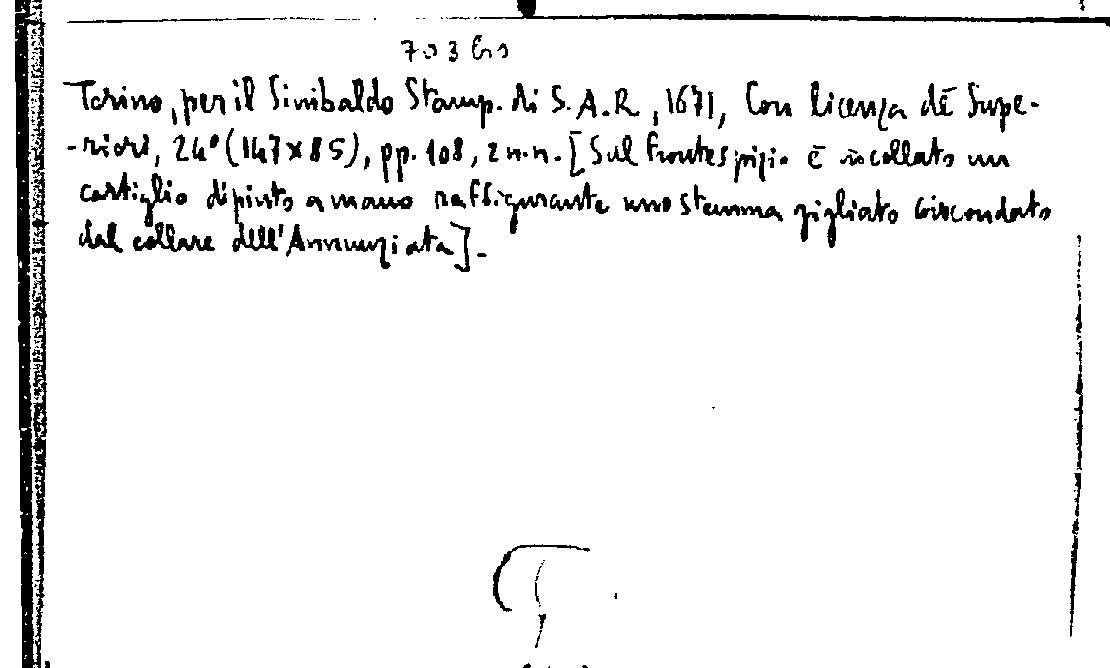 703 bis
Torino, per il Sinibaldo Stamp. di S.A.R, 1671, Con licenza dē Supe-
-riori, 24° (147x85), pp. 108, 2 n.n. [Sul frontespizio è incollato un
cartiglio dipinto a mano raffigurante uno stemma gigliato circondato
dal collare dell'Annunziata].-